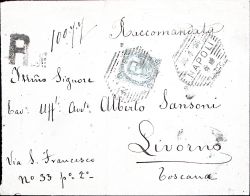 R
10077
Raccomandata
NAPOLI
Illmo Signore
Cav. Uff. Avv. Alberto Sansoni
Livorno
Via S. Francesco
No 33 po 2o
Toscana